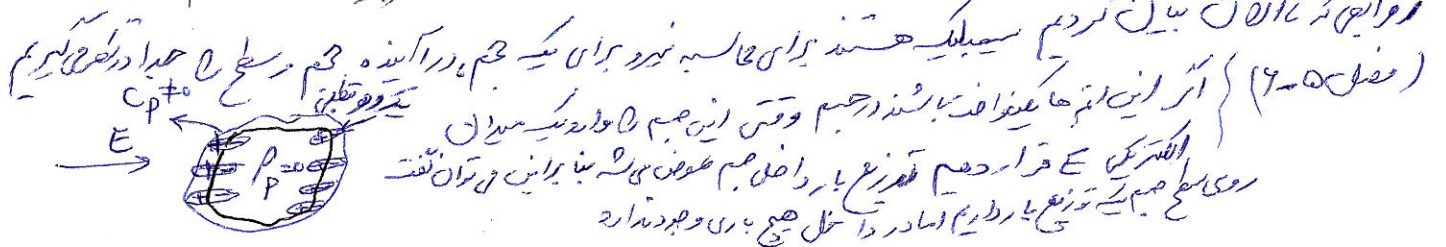 روابطی که تا الان بیان کردیم سیمبلیک هستند برای محاسبه نیرو برای یک حجم، در آینده حجم و سطح را جدا در نظر می‌گیریم
(فصل ۵-۶) اگر این اتم ها یکنواخت باشند در جسم وقتی این جسم را وارد یک میدان
الکتریکی E قرار دهیم توزیع بار داخل جسم عوض می‌شه بنابراین می توان گفت
روی سطح جسم یک توزیع بار داریم اما در داخل هیچ باری وجود ندارد
≠0
E
ρp=0